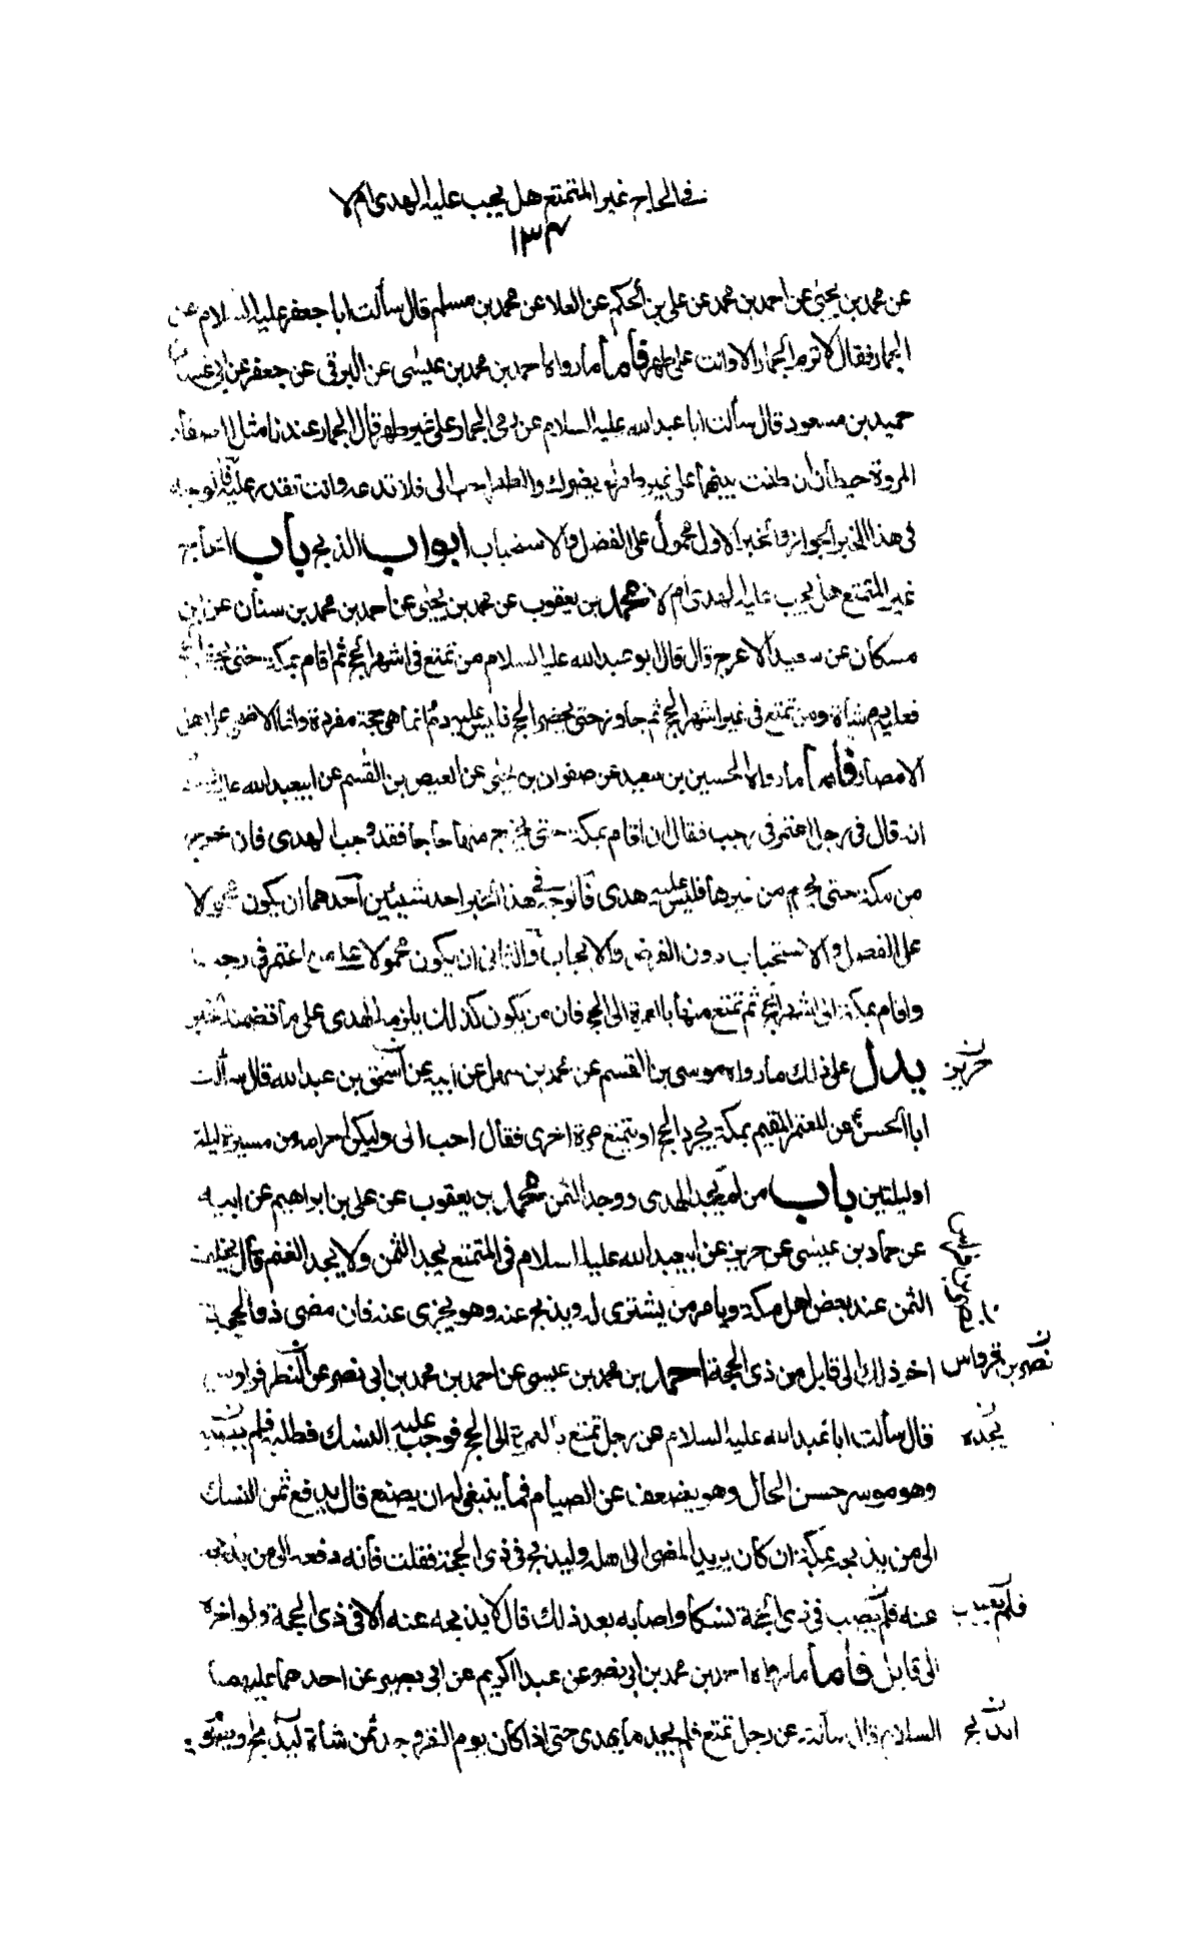 في الحاج غير المتمتع هل يجب عليه الهدى ام لا
١٣٤
عن محمد بن يحيى عن احمد بن محمد عن علي بن الحكم عن العلا عن محمد بن مسلم قال سألت ابا جعفر عليه السلام عن
الجمار فقال لا ترم الجمار الا وانت على طهر فأما ما رواه احمد بن محمد بن عيسى عن البرقى عن جعفر عن ابي غسان
حميد بن مسعود قال سألت ابا عبد الله عليه السلام عن رمى الجمار على غير طهر قال الجمار عندنا مثل الصفا و
المروة حيطان ان طفت بينهما على غير طهر لم يضرك والطهر احب الى فلا تدعه وانت تقدر عليه فالوجه
فى هذا الخبر الجواز والخبر الاول محمول على الفضل والاستحباب ابواب الذبح باب الحاج
غير المتمتع هل يجب عليه الهدى ام لا محمد بن يعقوب عن محمد بن يحيى عن احمد بن محمد بن سنان عن ابن
مسكان عن سعيد الاعرج قال قال ابو عبد الله عليه السلام من تمتع فى اشهر الحج ثم اقام بمكة حتى يحضر الحج
فعليه دم شاة ومن تمتع فى غير اشهر الحج ثم جاور حتى يحضر الحج فليس عليه دم انما هى حجة مفردة وانما الاضحى على اهل
الامصار فأما ما رواه الحسين بن سعيد عن صفوان بن يحيى عن العيص بن القسم عن ابيعبد الله عليه السلام
انه قال فى رجل اعتمر فى رجب فقال ان اقام بمكة حتى يخرج منها حاجا فقد وجب الهدى فان خرج
من مكة حتى يحرم من غيرها فليس عليه هدى فالوجه فى هذا الخبر احد شيئين احدهما ان يكون محمولا
على الفضل والاستحباب دون الفرض والايجاب والثانى ان يكون محمولا على من اعتمر فى رجب
واقام بمكة الى اشهر الحج ثم تمتع منها بالعمرة الى الحج فان من يكون كذلك يلزمه الهدى على ما تضمنه الخبر
يدل على ذلك ما رواه موسى بن القسم عن محمد بن سهل عن ابيه عن اسحق بن عبد الله قال سألت
ابا الحسن عن المعتمر المقيم بمكة يجرد الحج او يتمتع مرة اخرى فقال يتمتع احب الى وليكن احرامه من مسيرة ليلة
او ليلتين باب من لم يجد الهدى ووجد الثمن محمد بن يعقوب عن على بن ابراهيم عن ابيه
عن حماد بن عيسى عن حريز عن ابيعبد الله عليه السلام فى المتمتع يجد الثمن ولا يجد الغنم قال يخلف
الثمن عند بعض اهل مكة ويامر من يشترى له ويذبح عنه وهو يجزى عنه فان مضى ذو الحجة
اخر ذلك الى قابل من ذى الحجة احمد بن محمد بن عيسى عن احمد بن محمد بن ابى نصر عن النضر
قال سألت ابا عبد الله عليه السلام عن رجل تمتع بالعمرة الى الحج فوجب عليه النسك فطلبه فلم
وهو موسر حسن الحال وهو يضعف عن الصيام فما ينبغى له ان يصنع قال يدفع ثمن النسك
الى من يذبحه بمكة ان كان يريد المضى الى اهله وليذبح فى ذى الحجة فقلت فانه دفعه الى من يذبحه
عنه فلم يصب فى ذى الحجة نسكا واصابه بعد ذلك قال لا يذبحه عنه الا فى ذى الحجة ولو اخره
الى قابل فأما ما رواه احمد بن محمد بن ابى نصر عن عبد الكريم عن ابى بصير عن احدهما عليهما
السلام قال سألته عن رجل تمتع فلم يجد ما يهدى حتى اذا كان يوم النفر وجد ثمن شاة ايذبح او يصوم
حريز
نصر بن قرواش
يجده
فلم يصب
ايذبح